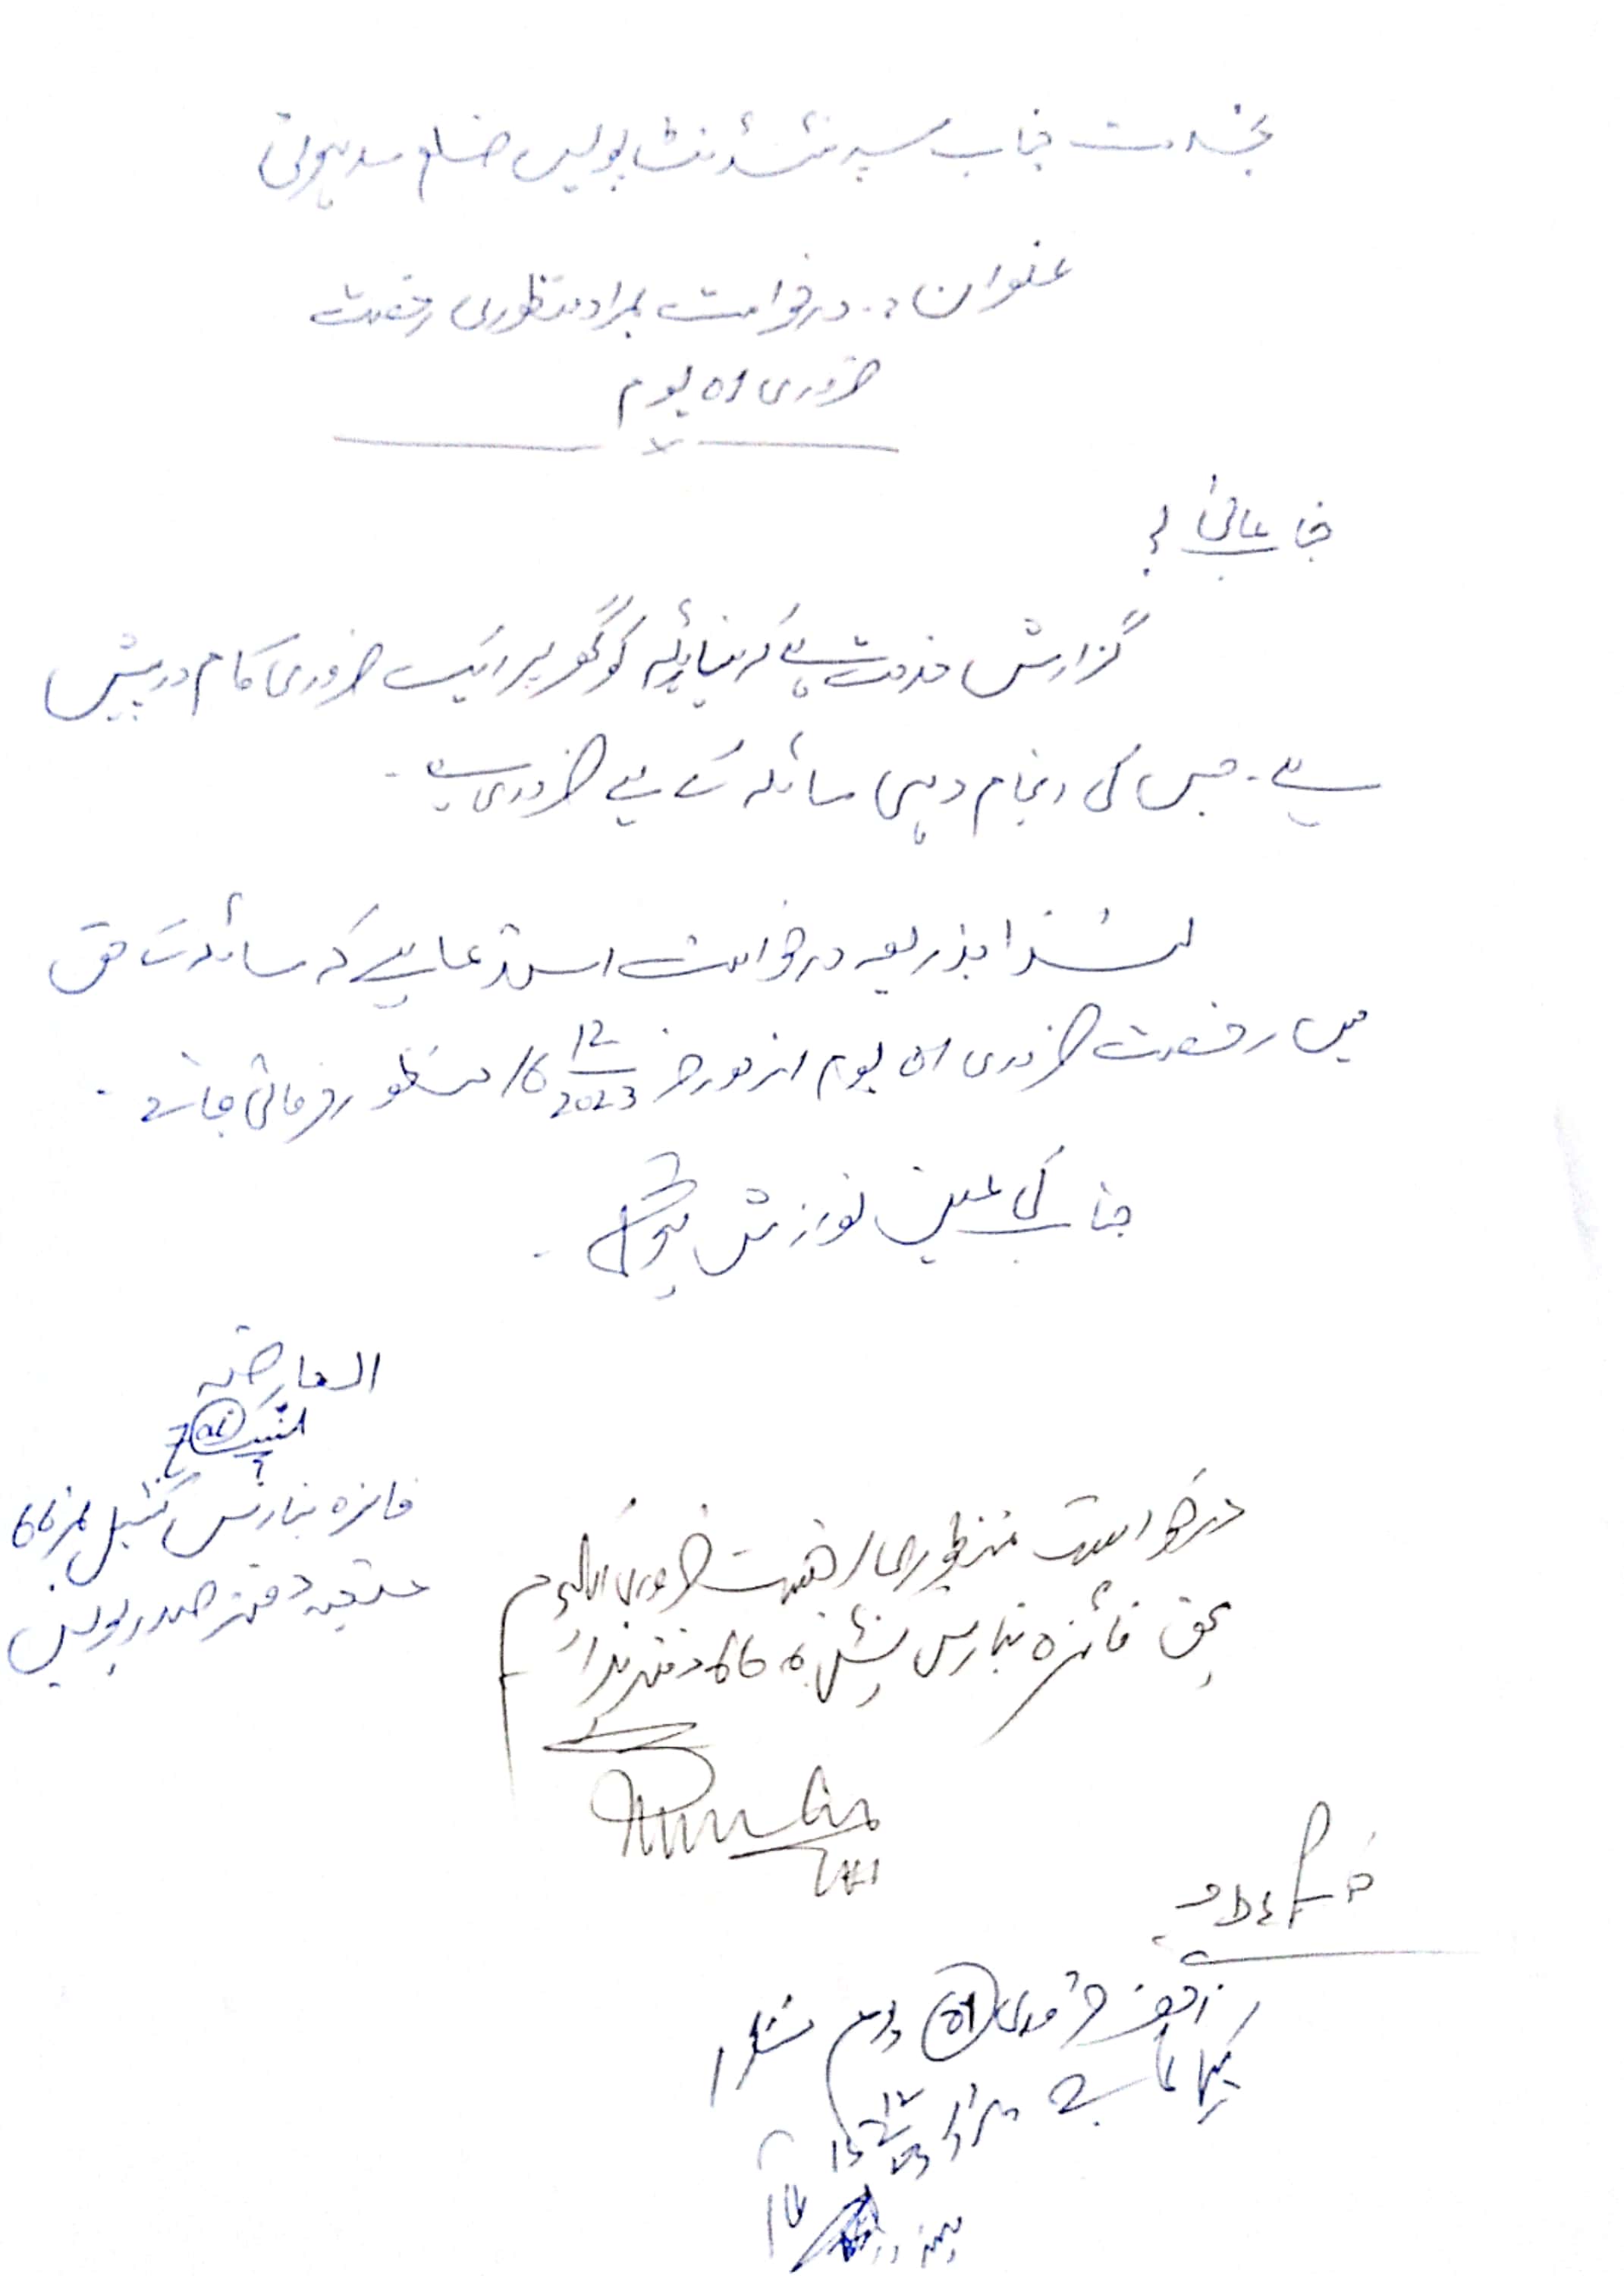 بخدمت جناب سپرنٹنڈنٹ پولیس ضلع سدہنوتی
عنوان :۔ درخواست بمراد منظوری رخصت
ضروری 01 یوم
جناب عالیٰ !
گزارش خدمت ہے کہ سائلہ کو گھر پر ایک ضروری کام درپیش
ہے۔ جس کی انجام دہی سائلہ کے لیے ضروری ہے۔
لہٰذا بذریعہ درخواست استدعا ہے کہ سائلہ کے حق
میں رخصت ضروری 01 یوم از مورخہ 16/12/2023 منظور فرمائی جائے۔
جناب کی عین نوازش ہوگی۔
العارضہ
فائزہ بنارس کنسٹیبل نمبر 66
متعینہ دفتر صدر پولیس
درخواست منظوری رخصت ضروری 01 یوم
بحق فائزہ بنارس کنسٹیبل 66 دفتر ہذا
ضروری 01 یوم منظور